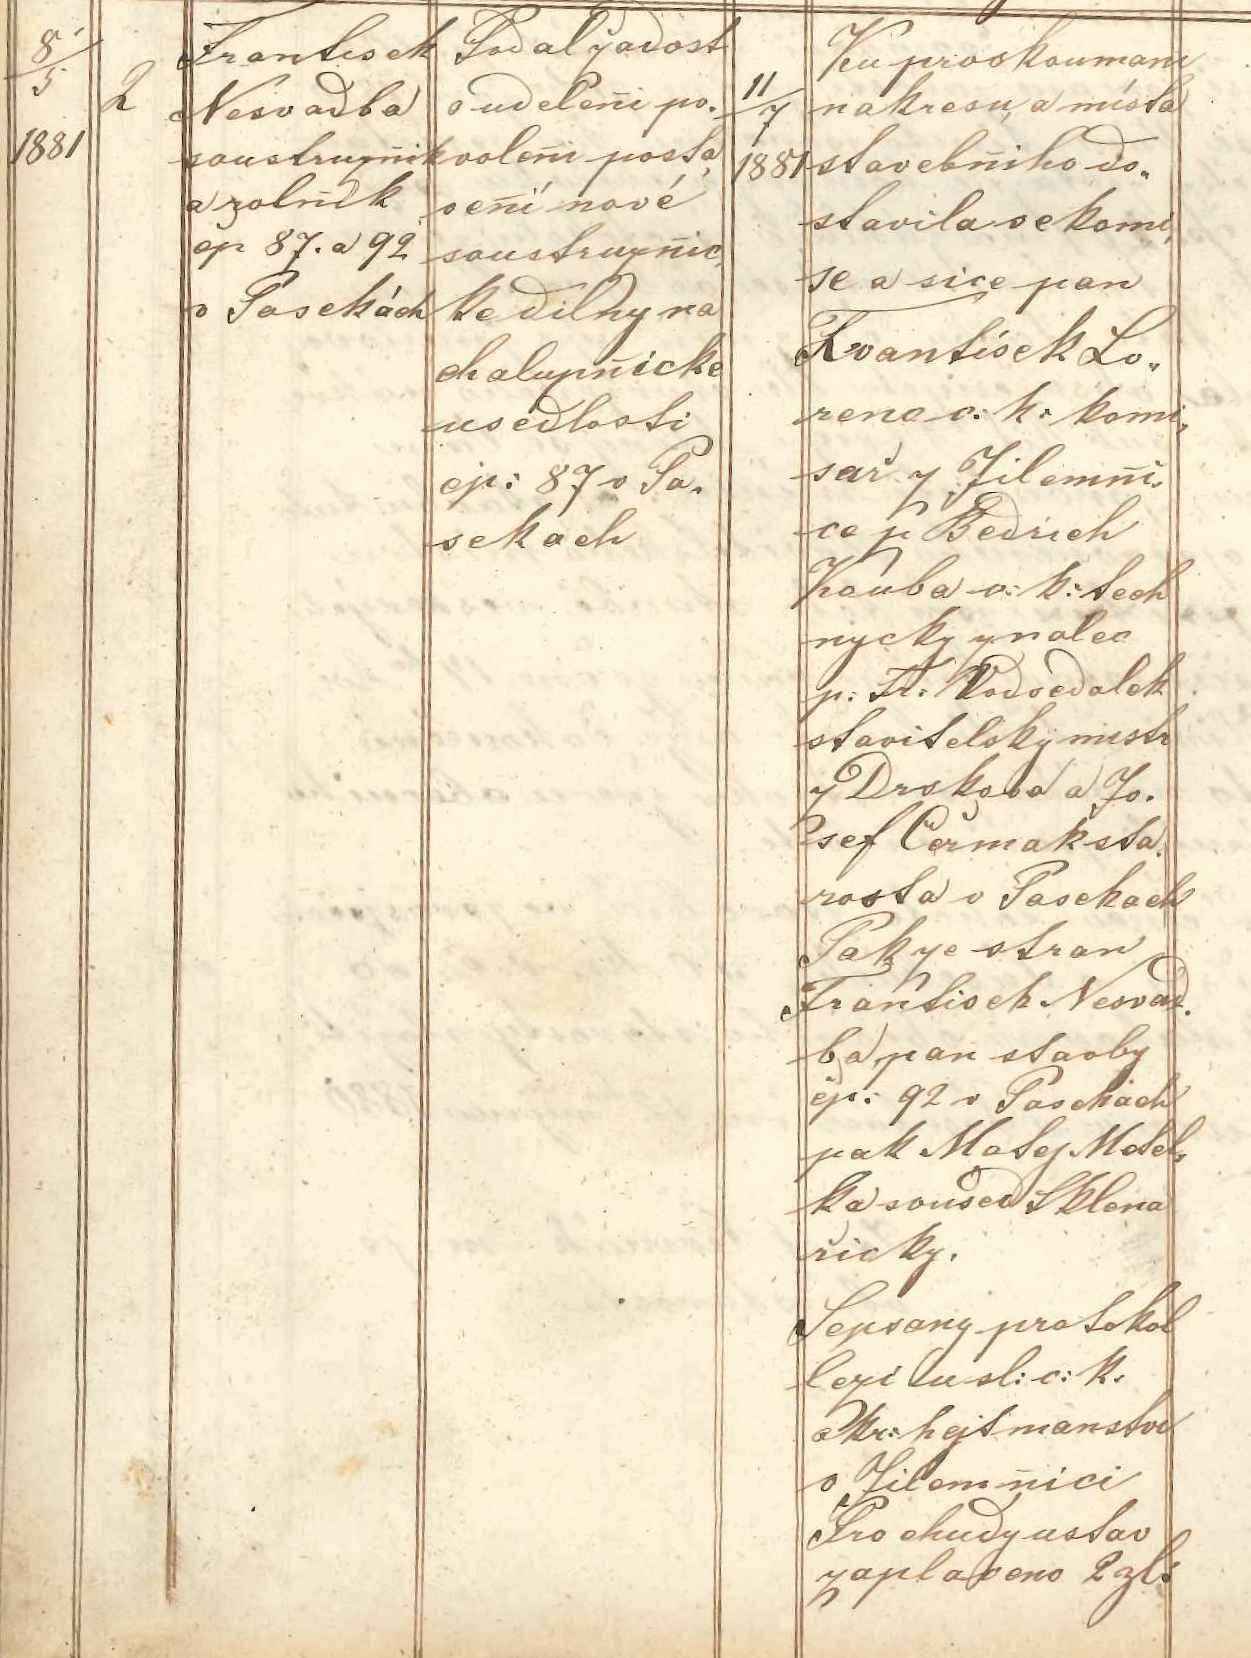 8/5
1881
2
Frantisek
Nesvadba
soustružňik
a rolnik
čp 87. a 92
v Pasekách
Podal žadost
o uděleñi po.
voleñi posta„
veñi nové
soustružñic„
ke dilny na
chalupñicke
usedlosti
čp: 87 v Pa.
sekach
11/7
1881
Ku proskoumani
nakresu, a mista
stavebñiho do„
stavila se komi„
se a sice pan
Frantisek Lo„
renc c: k: komi„
sař z Jilemñi„
ce p Bedrich
Kouba c: k: tech
nycky znalec
p: Fr: Vodsedalek
stavitelsky mistr
z Drskova a Jo.
sef Čermak sta„
rosta v Pasekach
Pak ze stran
Frantisek Nesvad.
ba, pan stavby
čp: 92 v Pasekách
pak Matej Metel„
ka soused Sklena
řicky.
Sepsany protokol
lezi u sl: c: k.
okr: hejtmanstvi
v Jilemñici
Pro chudy ustav
zaplaceno 2 zl: